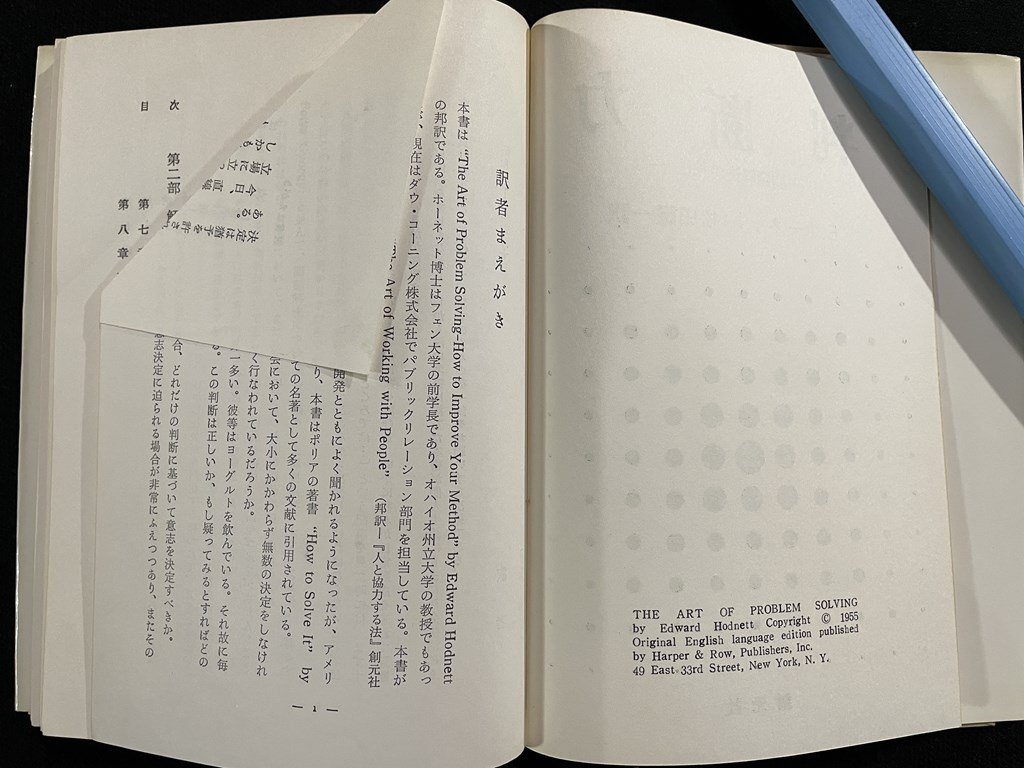 THE ART OF PROBLEM SOLVING
by Edward Hodnett Copyright © 1955
Original English language edition published
by Harper & Row, Publishers, Inc.
49 East 33rd Street, New York, N. Y.
訳者まえがき
本書は “The Art of Problem Solving–How to Improve Your Method” by Edward Hodnett
の邦訳である。ホーネット博士はフェン大学の前学長であり、オハイオ州立大学の教授でもあっ
、現在はダウ・コーニング株式会社でパブリックリレーション部門を担当している。本書が
Art of Working with People” (邦訳―『人と協力する法』創元社
開発とともによく聞かれるようになったが、アメリ
り、本書はポリアの著書 “How to Solve It” by
ての名著として多くの文献に引用されている。
において、大小にかかわらず無数の決定をしなけれ
く行なわれているだろうか。
一多い。彼等はヨーグルトを飲んでいる。それ故に毎
。この判断は正しいか、もし疑ってみるとすればどの
合、どれだけの判断に基づいて意志を決定すべきか。
意志決定に迫られる場合が非常にふえつつあり、またその
— 1 —
決定は猶予を許さ
ある。
今日、直線
立場に立
しかも
目次
第二部
第七
第八章